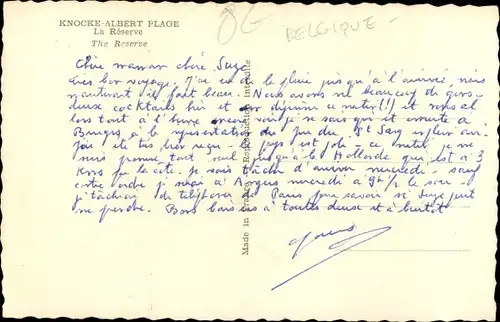 KNOCKE-ALBERT PLAGE
La Réserve
The Reserve
86
BELGIQUE -
Chère maman chère Suzy
très bon voyage. J'ai eu de la pluie jusqu'à l'arrivée, mais
maintenant il fait beau. Nous avons vu beaucoup de gens
deux cocktails hier et un déjeuner ce matin (!) et nous al
lons tout à l'heure
Bruges à la représentation du jeu du St Sang en plein air.
J'ai été très bien reçu - le pays est joli - ce matin je me
suis promené tout seul jusqu'à la Hollande qui est à 3
Kms par la côte. Je vais tâcher d'arriver mercredi - sauf
contre ordre je serai à mercredi à 9h 1/2 le soir -
je tâcherai de téléphoner de Paris pour savoir si Suzy peut
me prendre. Bons baisers à toutes deux et à bientôt
Made in France - Reproduction interdite